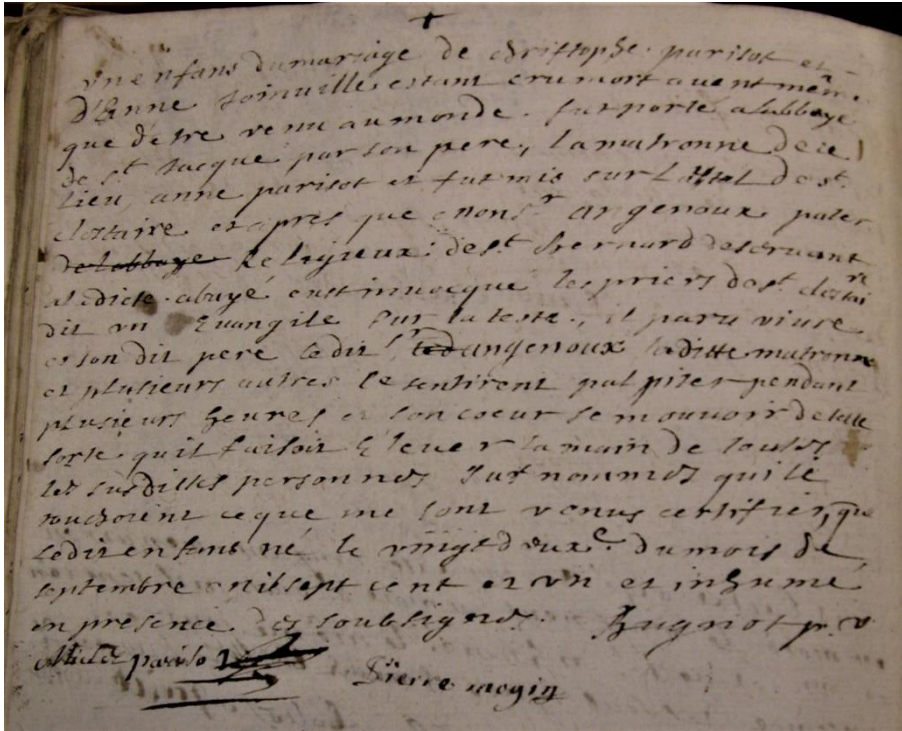 un enfans du mariage de Christophe parisot et
d'Enne Toinville estant cru mort avent mêm
que detre venu au monde fut porté a labbaye
de st Jacque par son pere, la matronne de ce
lieu anne parisot et fut mis sur L'Attal de st
clostaire et apres que monsr angenoux pater
de labbaye Religieux de st Bernard deservant
a ledicte abayé eust invocque les priers de st clostaire
dit un Evangile sur la teste, il paru vivre
et son dit pere ledit sr led angenoux laditte matronne
et plusieurs autres le sentirent palpiter pendant
plusieurs heures et son coeur se mouvoir de telle
sorte quil faisoit Elever la main de toutes
les susdittes personnes sus nommes qui le
touchoient ce que me sont venus certifier, que
ledit enfans né le vingt deuxe du mois de
septembre mil sept cent et un et inhumé
en presence des soubsignes. Hugnot p. v
parisot
Pierre mogin